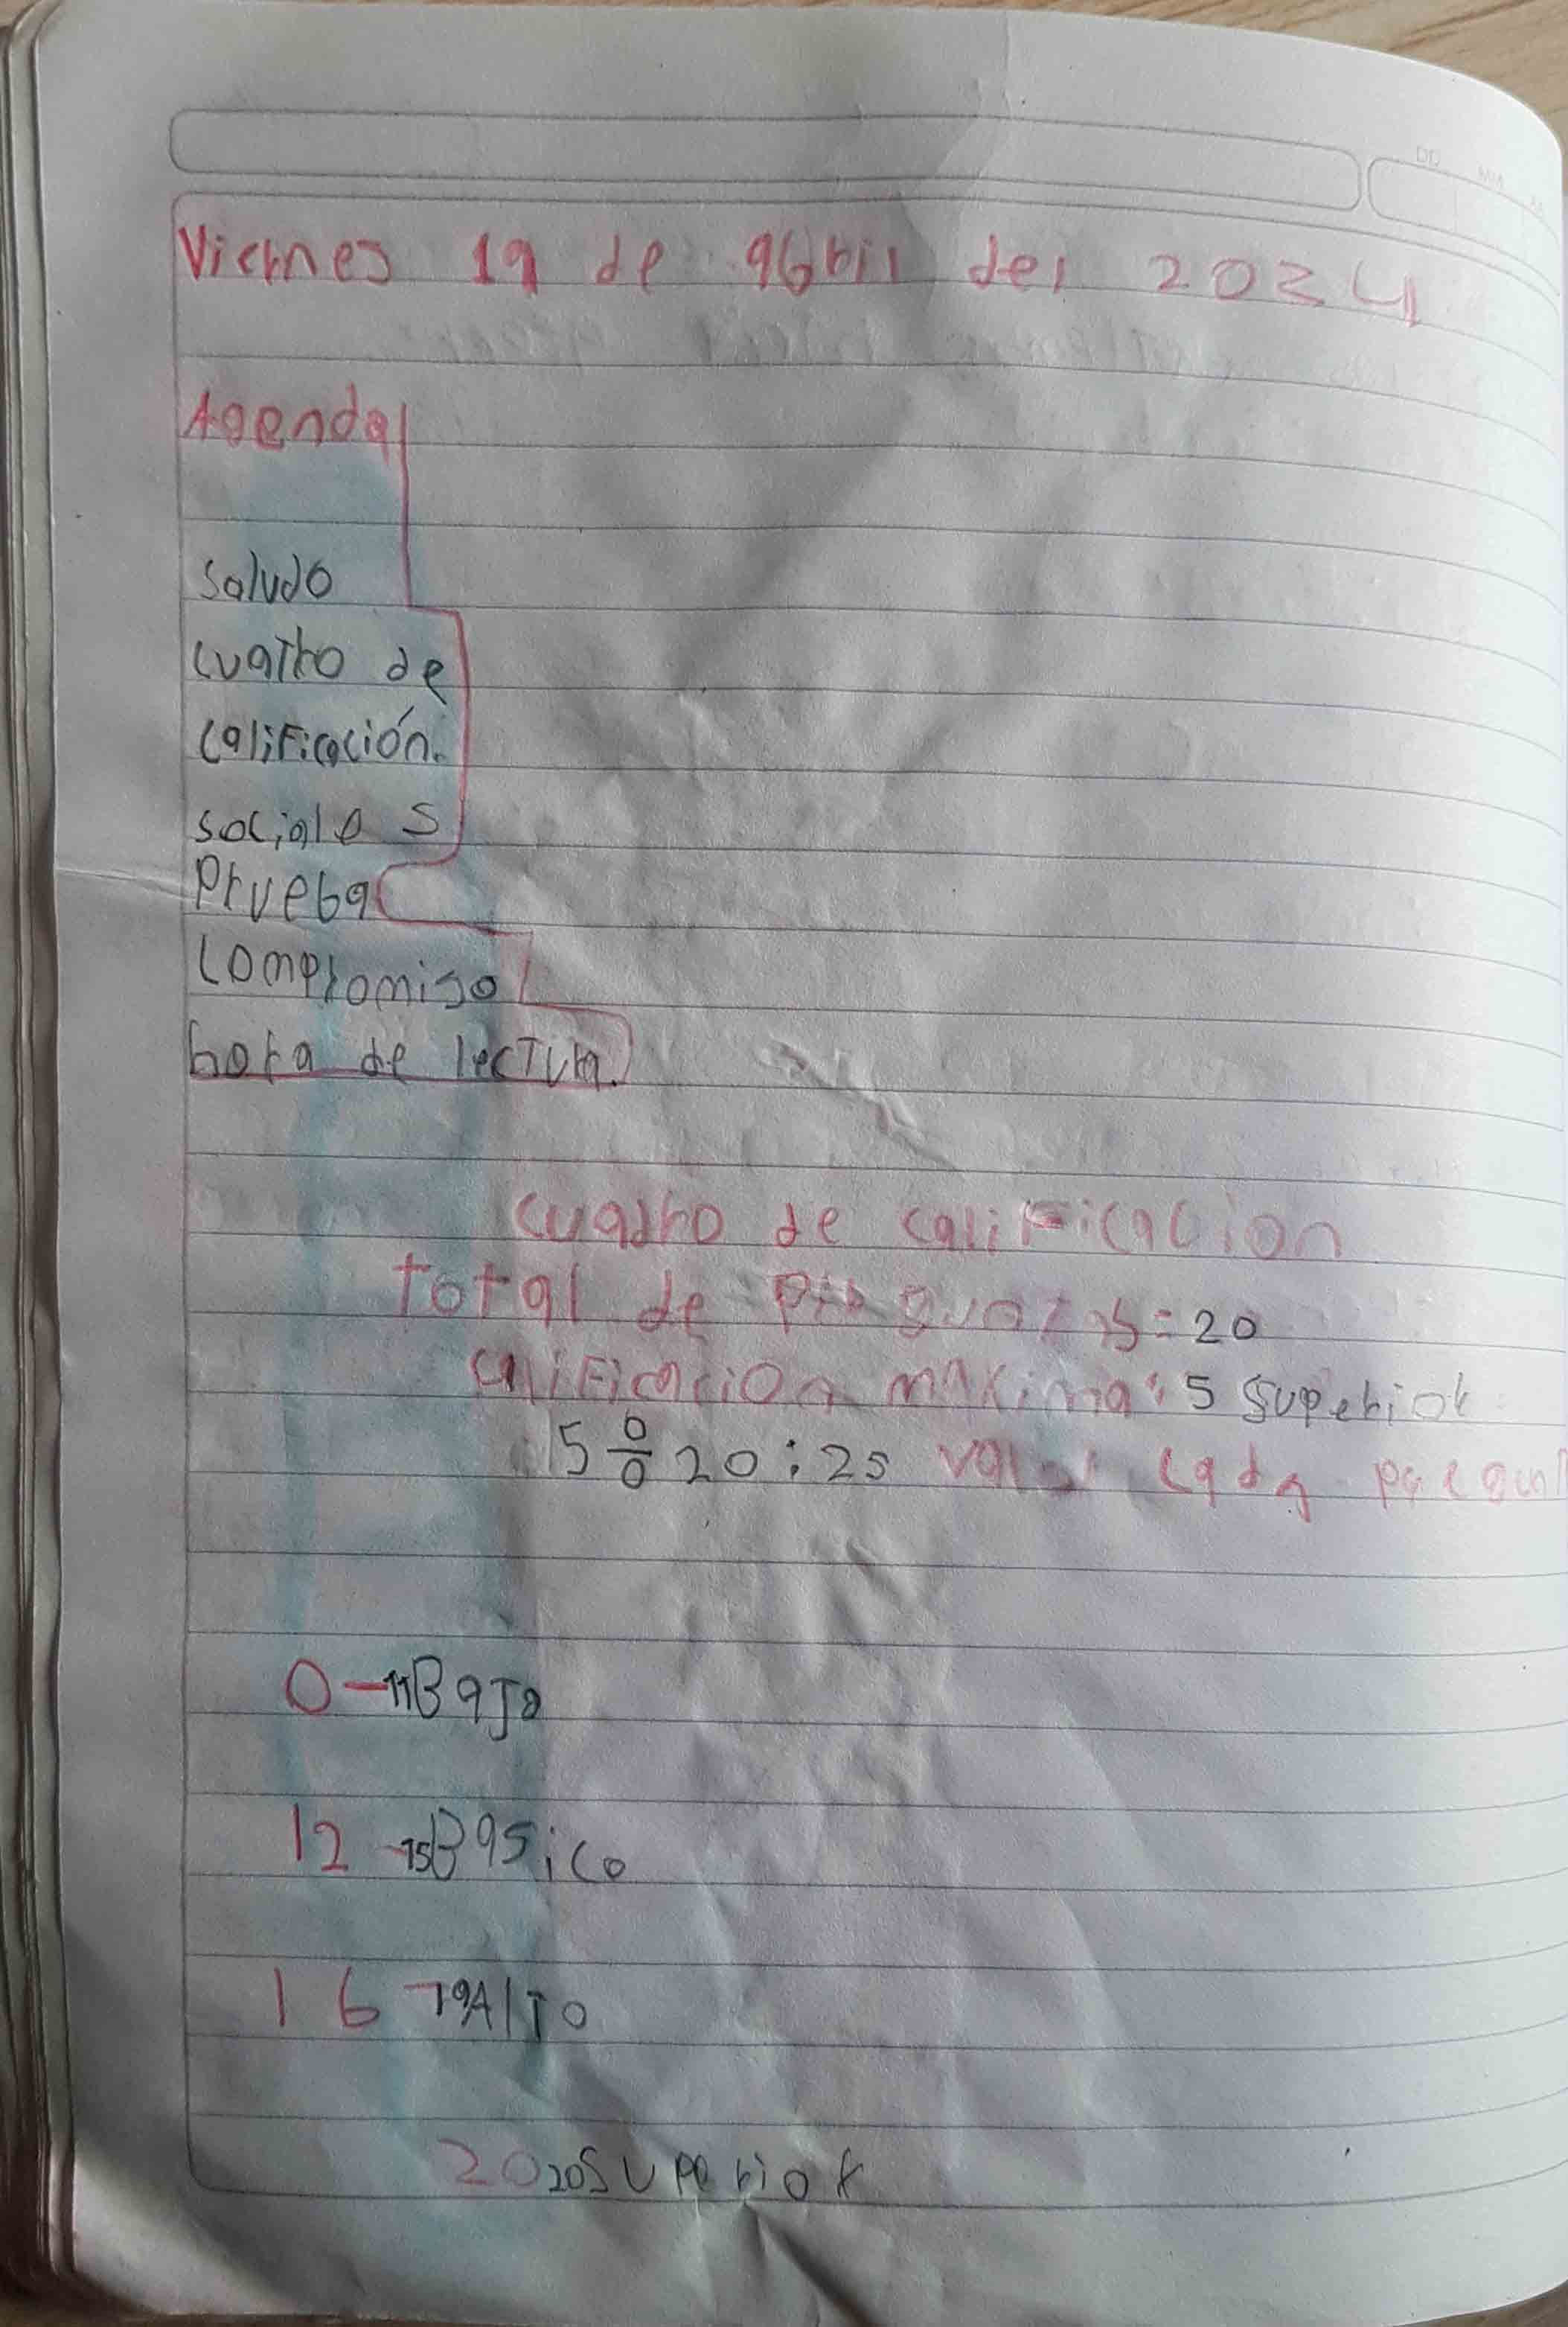 Viernes 19 de abril del 2024
Agenda
saludo
cuatro de
calificación.
sociales
Prueba
compromiso
hora de lectura.
cuadro de calificacion
total de =20
calificacion maxima: 5 superior
5 ÷ 20 : 25 valor cada
0-11 Bajo
12-15 Basico
16-19 Alto
20 20 superior